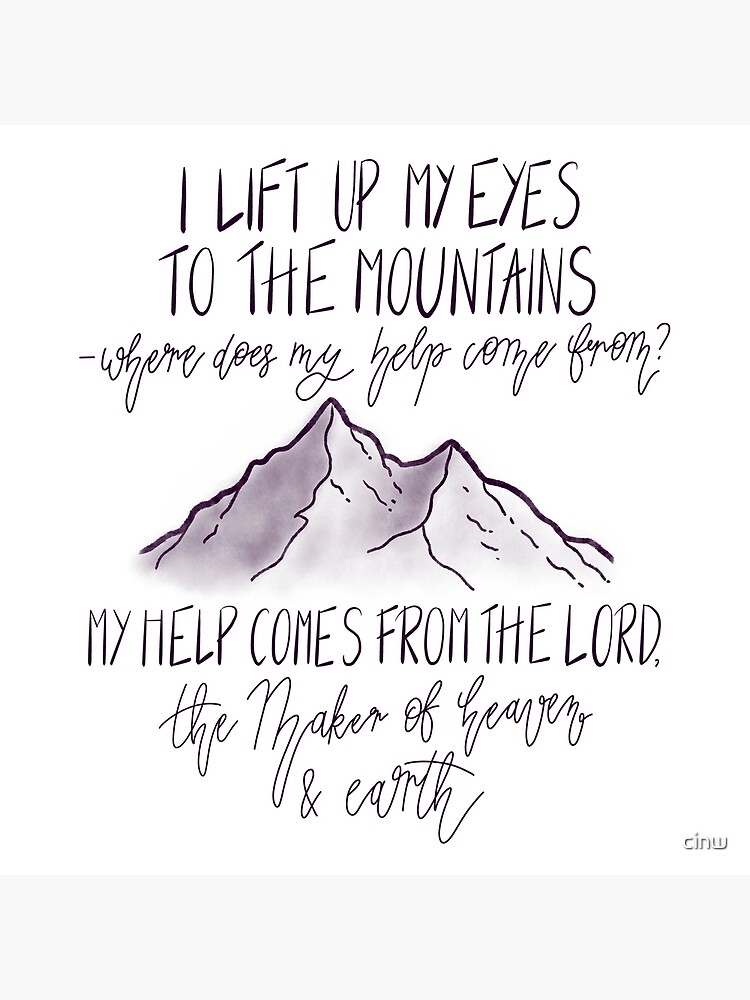 I LIFT UP MY EYES
TO THE MOUNTAINS
-where does my help come from?
MY HELP COMES FROM THE LORD,
the Maker of heaven
& earth
cinw